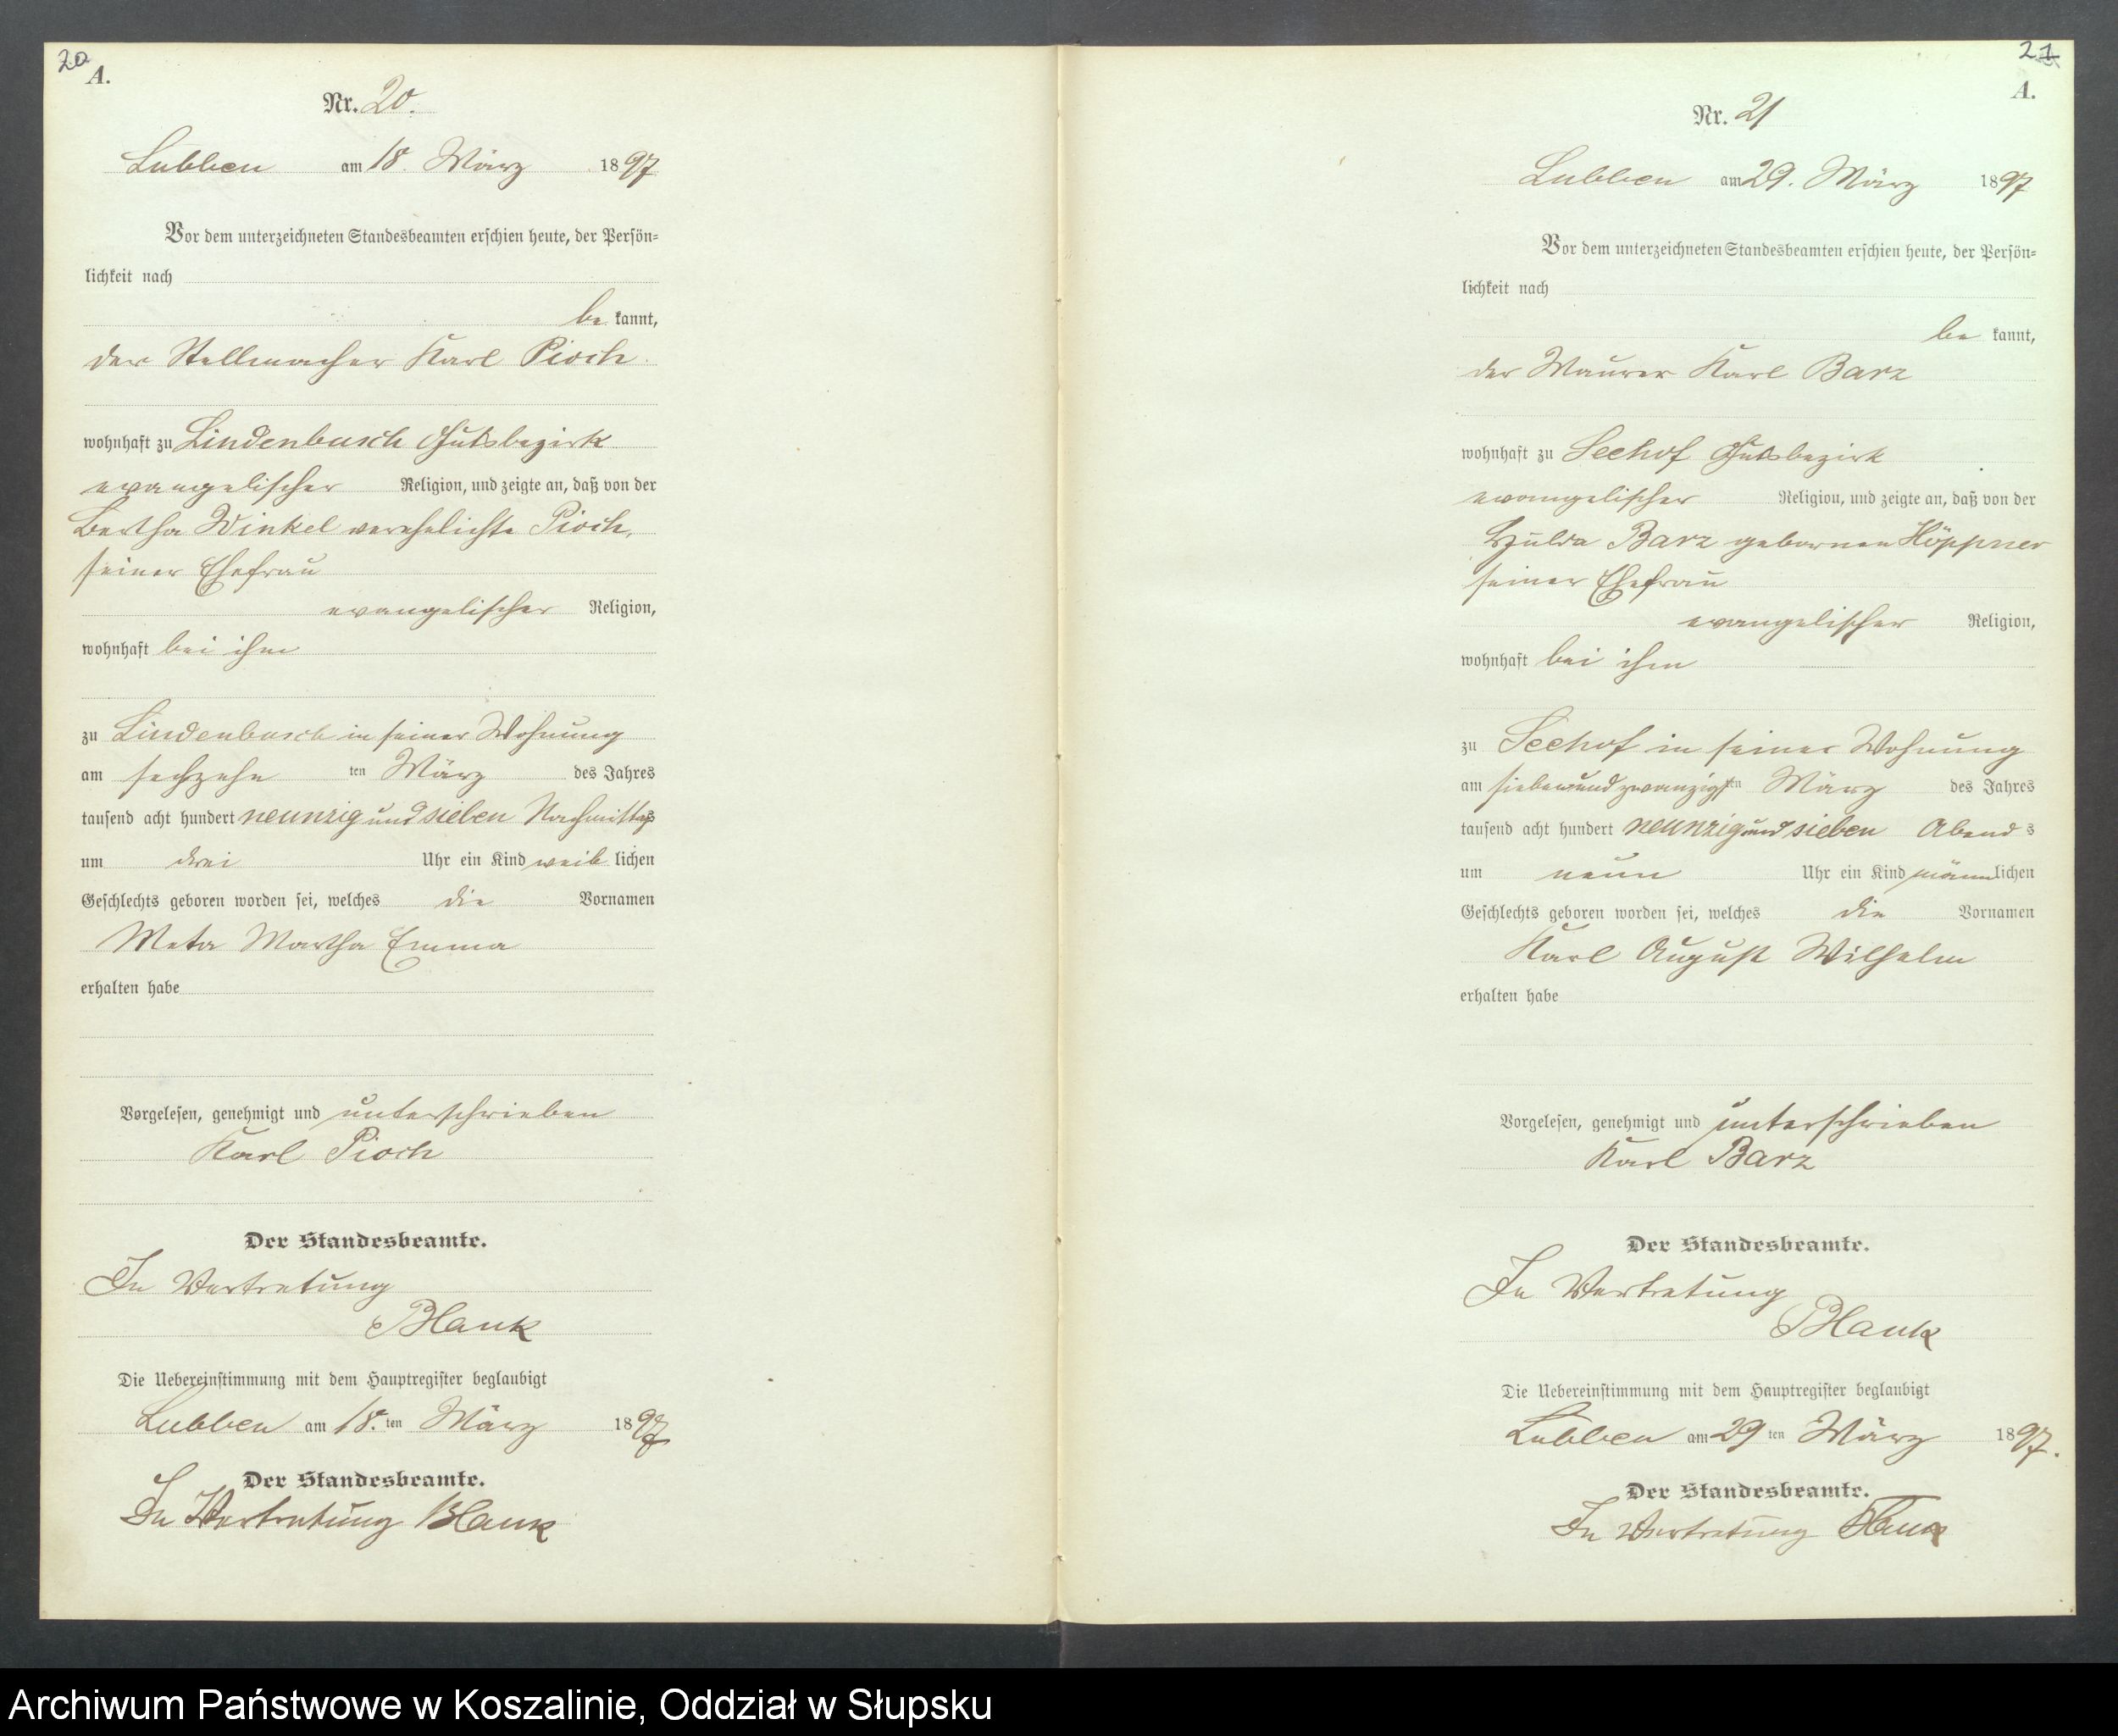 20
A.
Nr. 20.
Lubben am 18. März 1897
Vor dem unterzeichneten Standesbeamten erschien heute, der Persön-
lichkeit nach
be kannt,
der Stellmacher Karl Pioch
wohnhaft zu Lindenbusch Gutsbezirk
evangelischer Religion, und zeigte an, daß von der
Bertha Winkel verehelichte Pioch,
seiner Ehefrau
evangelischer Religion,
wohnhaft bei ihm
zu Lindenbusch in seiner Wohnung
am sechzehn ten März des Jahres
tausend acht hundert neunzig und sieben Nachmittags
um drei Uhr ein Kind weib lichen
Geschlechts geboren worden sei, welches die Vornamen
Meta Martha Emma
erhalten habe
Vorgelesen, genehmigt und unterschrieben
Karl Pioch
Der Standesbeamte.
In Vertretung
Blank
Die Uebereinstimmung mit dem Hauptregister beglaubigt
Lubben am 18. ten März 1897
Der Standesbeamte.
In Vertretung Blank
21
A.
Nr. 21
Lubben am 29. März 1897
Vor dem unterzeichneten Standesbeamten erschien heute, der Persön-
lichkeit nach
be kannt,
der Maurer Karl Barz
wohnhaft zu Seehof Gutsbezirk
evangelischer Religion, und zeigte an, daß von der
Hulda Barz gebornen Höppner
seiner Ehefrau
evangelischer Religion,
wohnhaft bei ihm
zu Seehof in seiner Wohnung
am siebenundzwanzigsten März des Jahres
tausend acht hundert neunzig und sieben Abend s
um neun Uhr ein Kind männlichen
Geschlechts geboren worden sei, welches die Vornamen
Karl August Wilhelm
erhalten habe
Vorgelesen, genehmigt und unterschrieben
Karl Barz
Der Standesbeamte.
In Vertretung
Blank
Die Uebereinstimmung mit dem Hauptregister beglaubigt
Lubben am 29 ten März 1897.
Der Standesbeamte.
In Vertretung Blank
Archiwum Państwowe w Koszalinie, Oddział w Słupsku